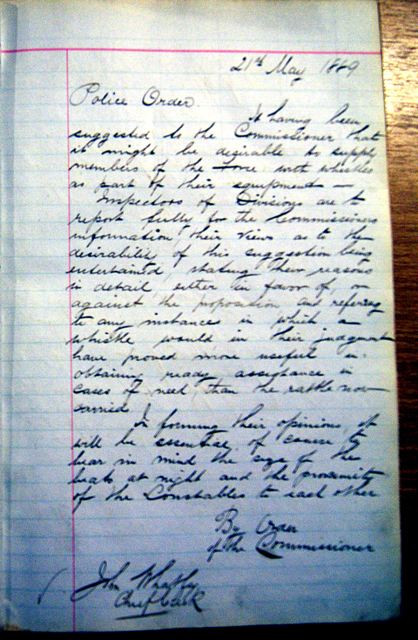 21st May 1869
Police Order.
It having been
suggested to the Commissioner that
it might be desirable to supply
members of the Force with whistles
as part of their equipment —
Inspectors of Divisions are to
report fully for the Commissioners
information, their views as to the
desirability of this suggestion being
entertained, stating their reasons
in detail either in favor of, or
against the proposition and referring
to any instances in which a
whistle would in their judgment
have proved more useful in
obtaining ready assistance in
cases of need, than the rattle now
carried.
In forming their opinions, it
will be essential of course to
bear in mind the size of the
beats at night and the proximity
of the Constables to each other
By Order
of the Commissioner
John
Chief Clerk